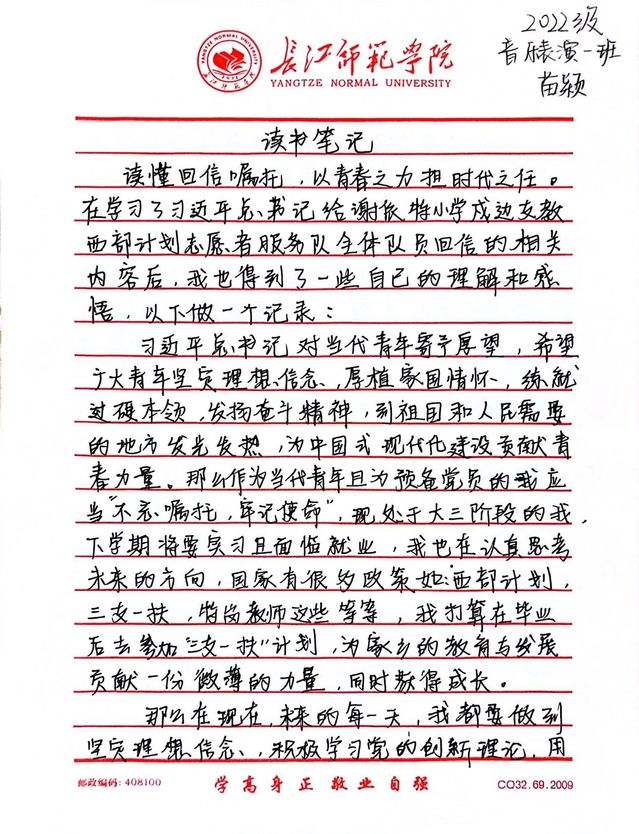 2022级
音乐表演一班
苗颖
YANGTZE NORMAL UNIVERSITY
长江师范学院
長江师範學院
YANGTZE NORMAL UNIVERSITY
读书笔记
读懂回信嘱托，以青春之力担时代之任。
在学习了习近平总书记给谢依特小学戍边支教
西部计划志愿者服务队全体队员回信的相关
内容后，我也得到了一些自己的理解和感
悟，以下做一个记录：
习近平总书记对当代青年寄予厚望，希望
广大青年坚定理想信念、厚植家国情怀、练就
过硬本领，发扬奋斗精神，到祖国和人民需要
的地方发光发热，为中国式现代化建设贡献青
春力量。那么作为当代青年且为预备党员的我应
当“不忘嘱托，牢记使命”，现处于大三阶段的我，
下学期将要实习且面临就业，我也在认真思考
未来的方向，国家有很多政策如：西部计划，
三支一扶，特岗教师这些等等，我打算在毕业
后去参加“三支一扶”计划，为家乡的教育与发展
贡献一份微薄的力量，同时获得成长。
那么在现在，未来的每一天，我都要做到
坚定理想信念、，积极学习党的创新理论，用
邮政编码：408100
学高身正 敬业自强
CQ32.69.2009